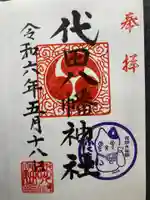 奉拝
代田八幡神社
令和六年五月十八日